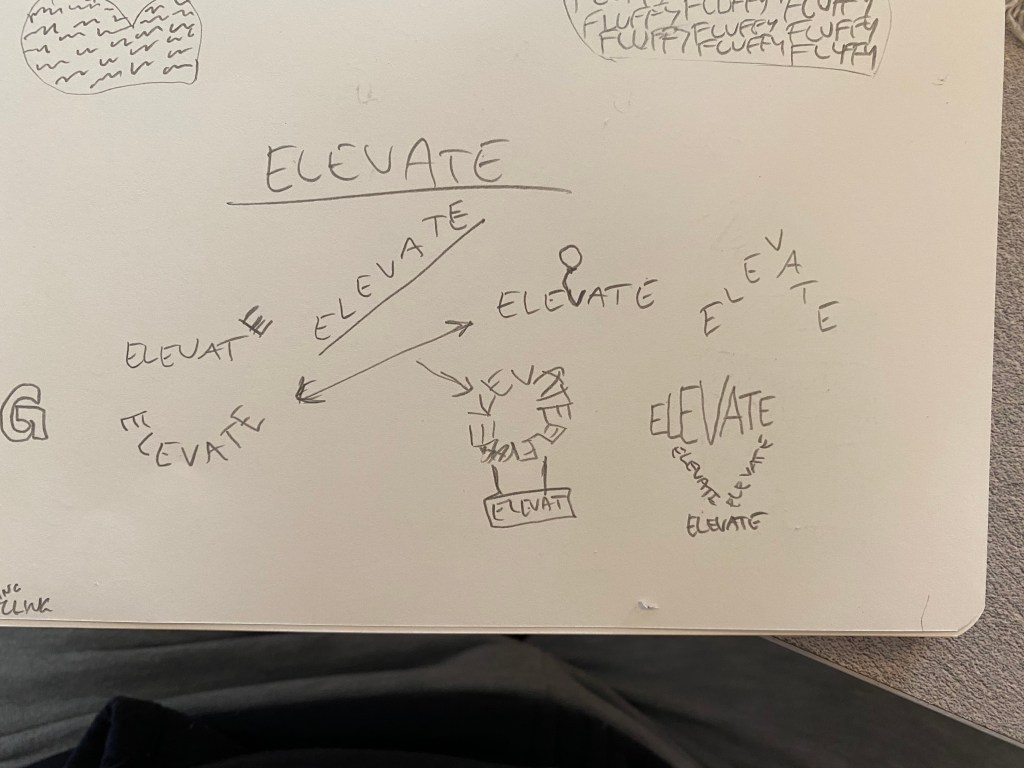 FLUFFY FLUFFY FLUFFY
FLUFFY FLUFFY FLUFFY
ELEVATE
ELEVATE
ELEVATE
ELEVATE
ELEVATE
ELEVATE
ELEVATE
G
ELEVATE
ELEVATE
ELEVATE
ELEVAT
ELEVATE